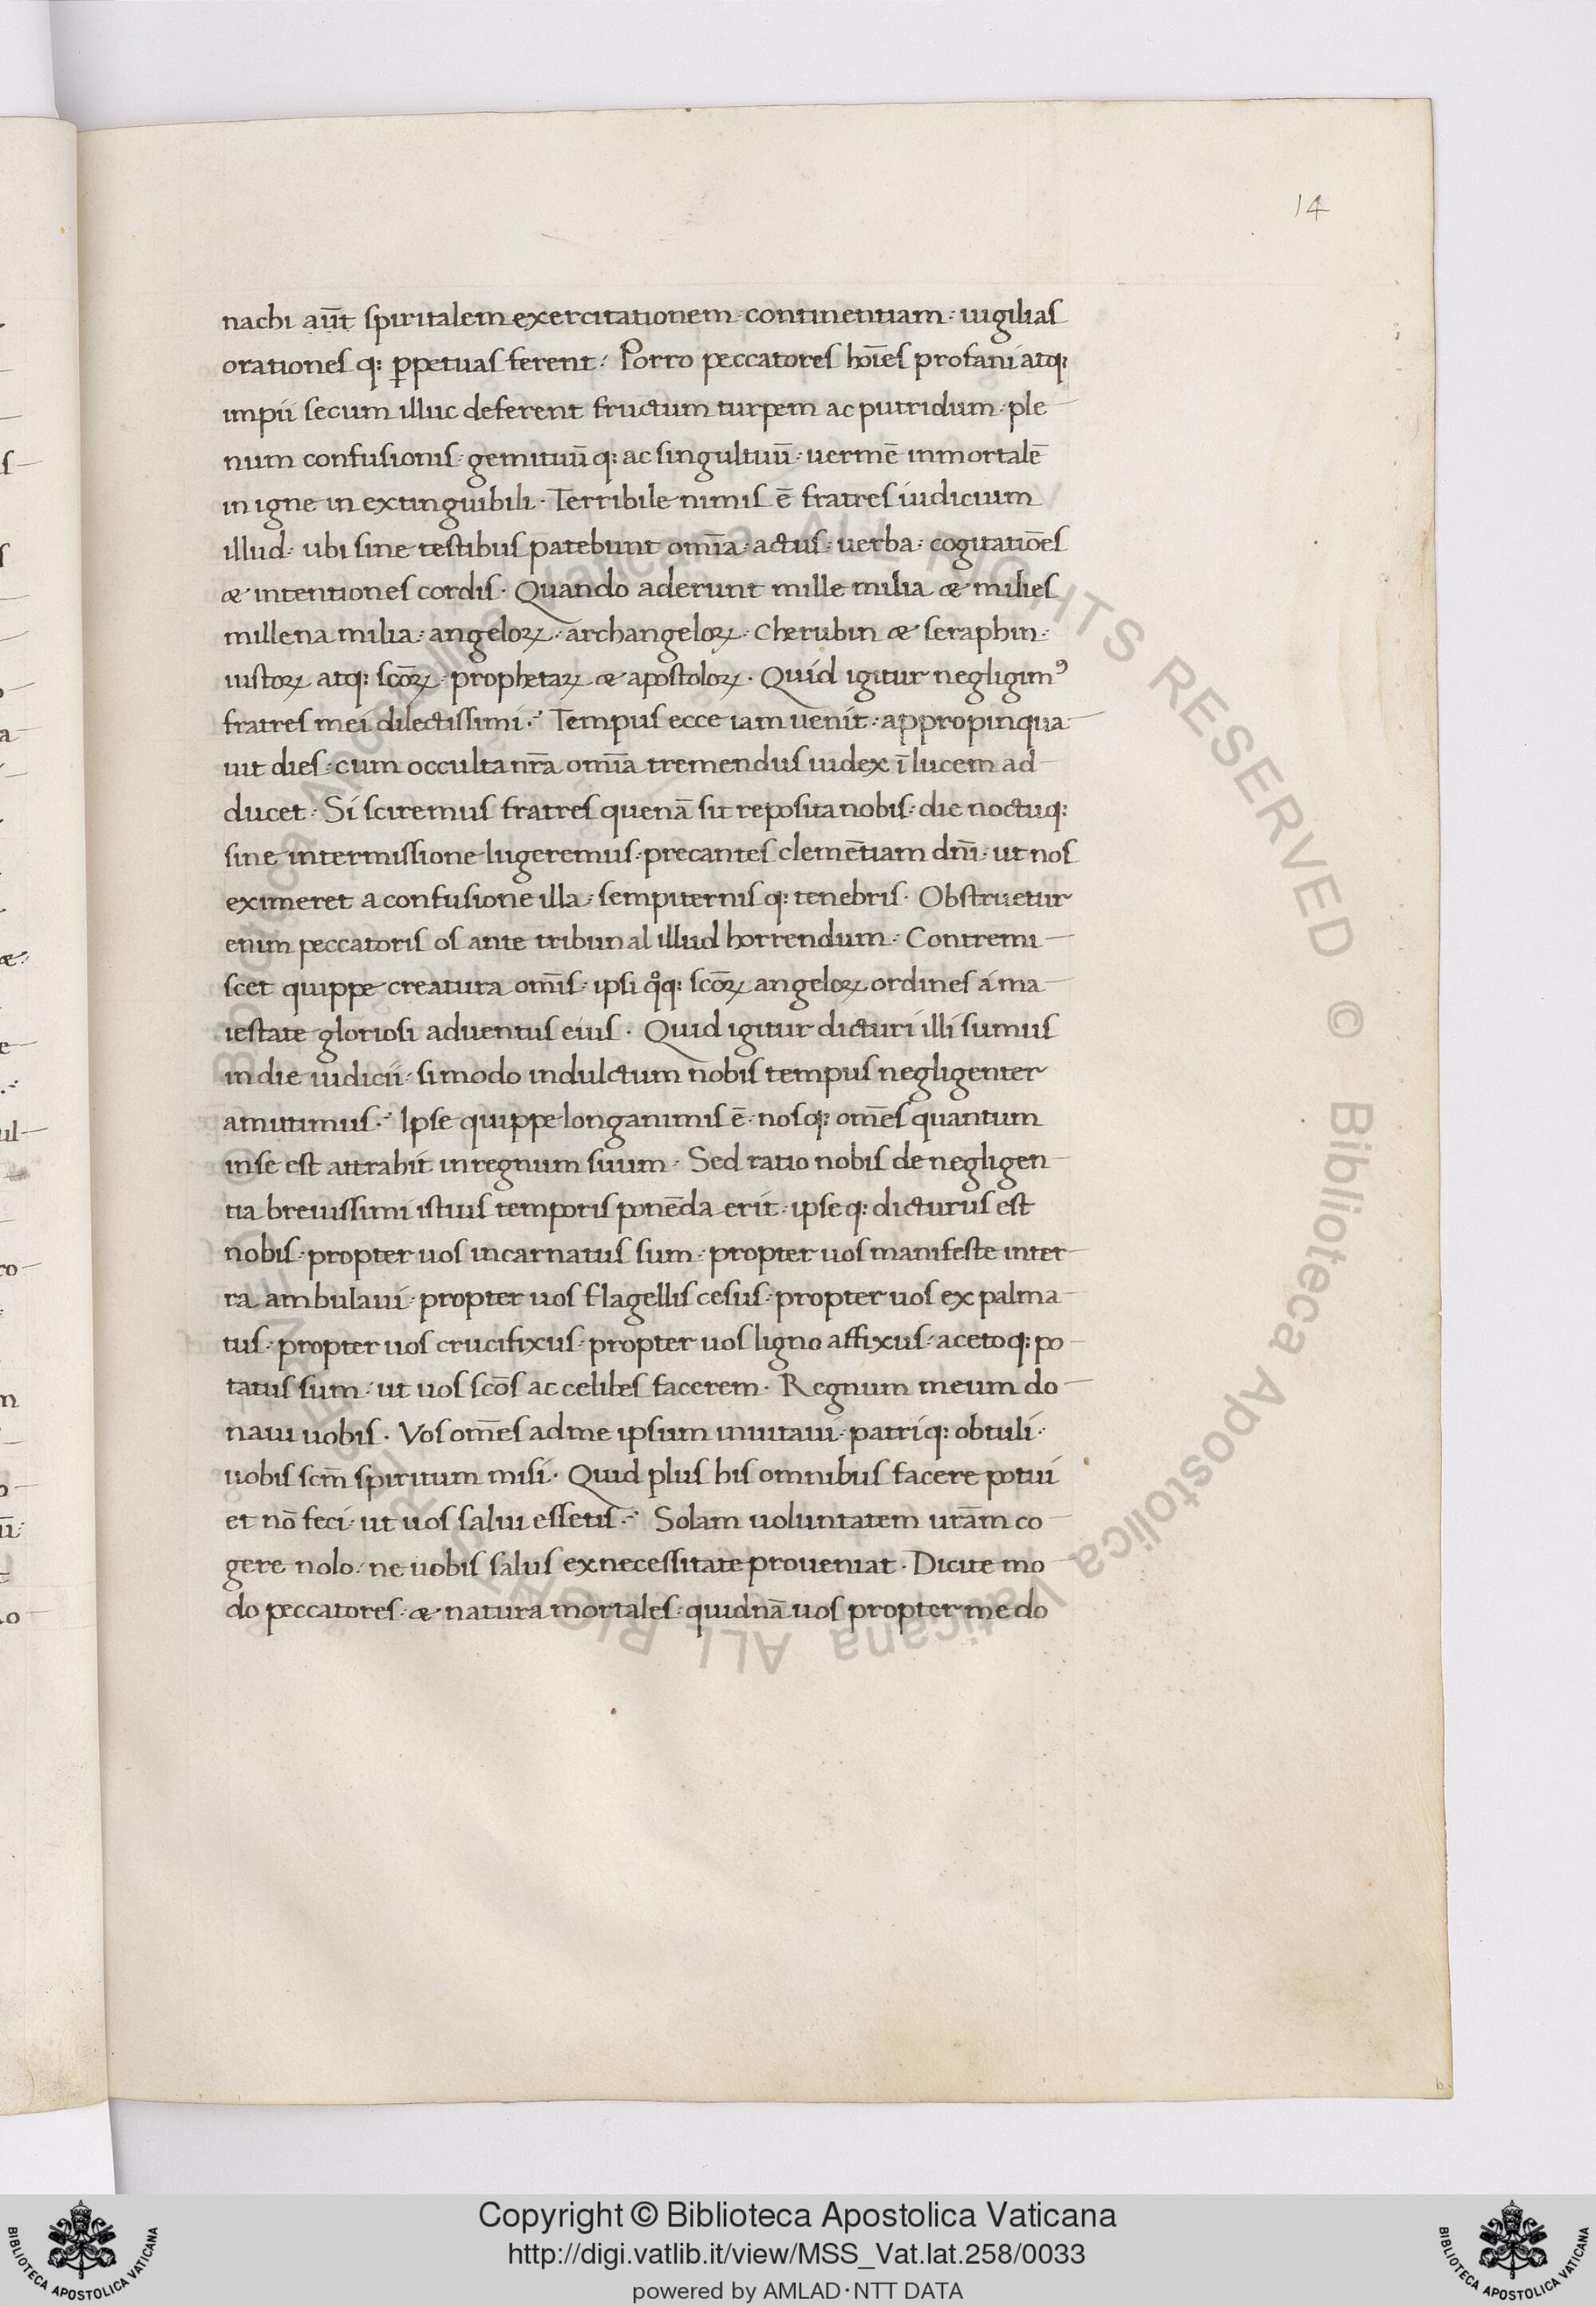 14
nachi aūt spiritalem exercitationem · continentiam · uigilias
orationes q: ꝑpetuas ferent : Porro peccatores hoīes profani atq:
impii secum illuc deferent fructum turpem ac putridum · ple
num confusionis · gemituū q: ac singultuū · uermē inmortalē
in igne in extinguibili · Terribile nimis ē fratres iudicium
illud · ubi sine testibus patebunt om̄ia · actus · uerba · cogitatiōes
æ intentiones cordis · Quando aderunt mille milia æ milies
millena milia · angeloꝝ · archangeloꝝ · Cherubin æ seraphin ·
iustoꝝ atq: scōꝝ · prophetaꝝ æ apostoloꝝ · Quid igitur negligimꝰ
fratres mei dilectissimi · Tempus ecce iam uenit · appropinqua
uit dies · cum occulta nr̄a om̄ia tremendus iudex ī lucem ad
ducet · Si sciremus fratres quenā sit reposita nobis · die noctuq:
sine intermissione lugeremus · precantes clemēntiam dn̄i · ut nos
eximeret a confusione illa · sempiternis q: tenebris · Obstruetur
enim peccatoris os ante tribunal illud horrendum · Contremi
scet quippe creatura om̄is · ipsi qͦq: scōꝝ angeloꝝ ordines á ma
iestate gloriosi aduentus eius · Quid igitur dicturi illi sumus
in die iudicii · si modo indulctum nobis tempus negligenter
amittimus · Ipse quippe longanimis ē · nosq: om̄es quantum
inse est attrahit in regnum suum · Sed ratio nobis de negligen
tia breuissimi istius temporis ponēda erit · ipse q: dicturus est
nobis · propter uos incarnatus sum · propter uos manifeste inter
ra ambulaui · propter uos flagellis cesus · propter uos ex palma
tus · propter uos crucifixus · propter uos ligno affixus · aceto q: po
tatus sum · ut uos scōs ac celibes facerem · Regnum meum do
naui uobis · Vos om̄es ad me ipsum inuitaui · patri q: obtuli ·
uobis scm̄ spiritum misi · Quid plus his omnibus facere potui
et nō feci · ut uos salui essetis · Solam uoluntatem urām co
gere nolo · ne uobis salus ex necessitate proueniat · Dicite mo
do peccatores · æ natura mortales · quidnā uos propter me do
Copyright © Biblioteca Apostolica Vaticana
http://digi.vatlib.it/view/MSS_Vat.lat.258/0033
powered by AMLAD·NTT DATA